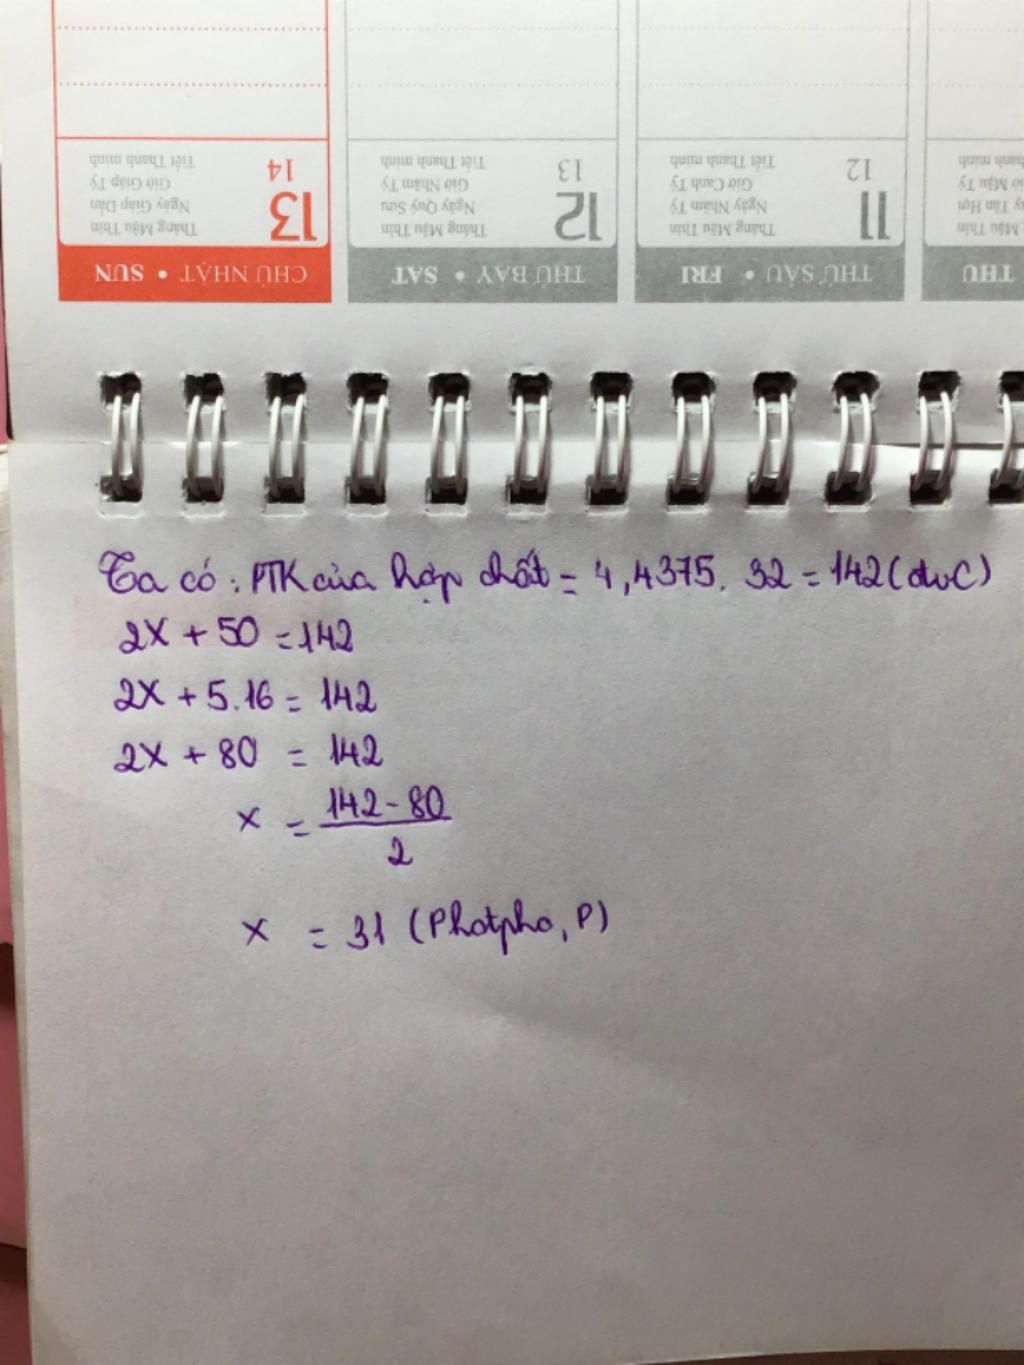 14
Tiết Thanh minh
Giờ Giáp Tý
Ngày Giáp Dần
Tháng Mậu Thìn
13
CHỦ NHẬT • SUN
13
Tiết Thanh minh
Giờ Nhâm Tý
Ngày Quý Sửu
Tháng Mậu Thìn
12
THỨ BẢY • SAT
12
Tiết Thanh minh
Giờ Canh Tý
Ngày Nhâm Tý
Tháng Mậu Thìn
11
THỨ SÁU • FRI
minh
Mậu Tý
Tân Hợi
Mậu Thìn
THU
Ta có: PTK của hợp chất = 4,4375. 32 = 142 (đvC)
2X + 5O = 142
2X + 5.16 = 142
2X + 80 = 142
X = 142 - 80
2
X = 31 (Photpho, P)